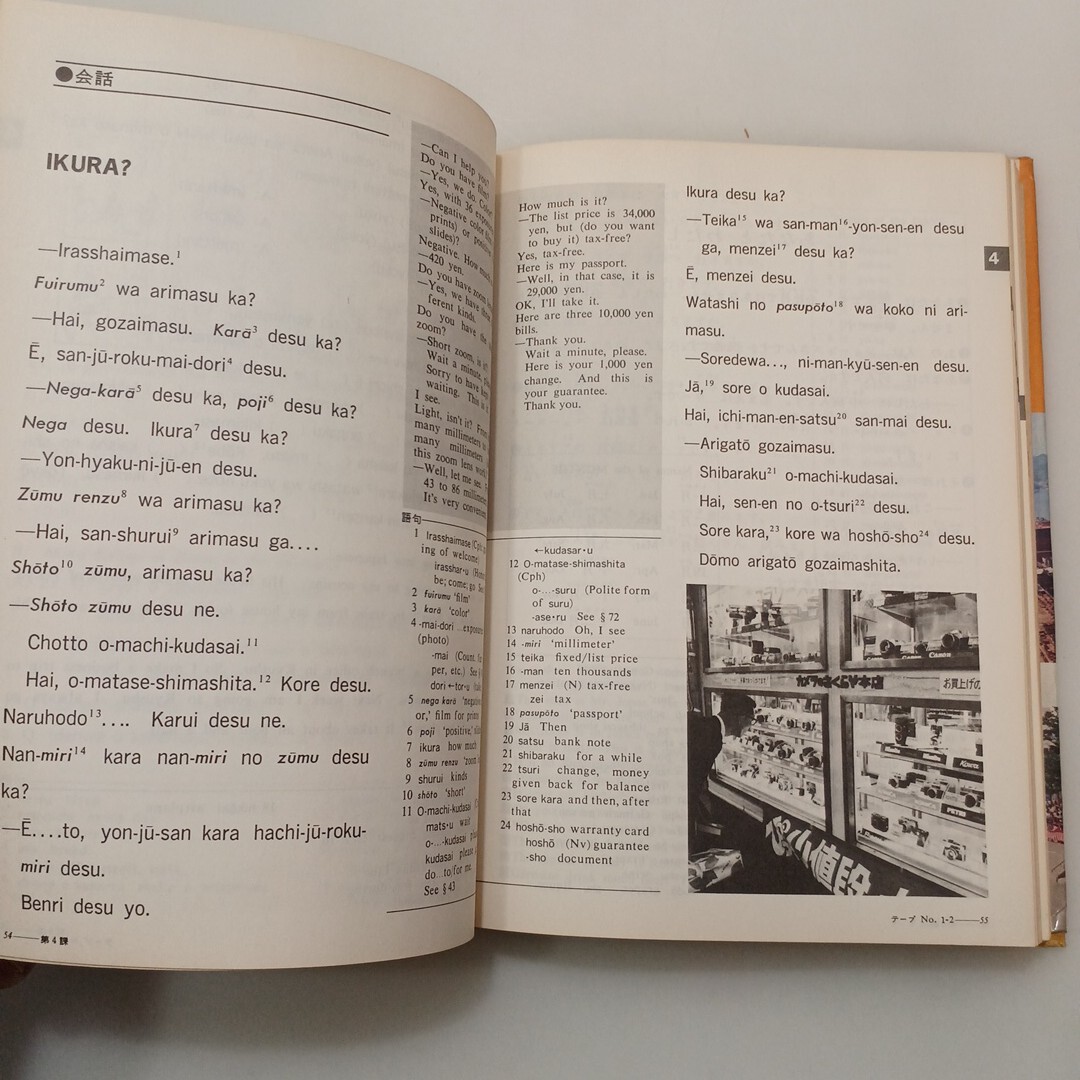 ●会話
IKURA?
—Irasshaimase.1
Fuirumu2 wa arimasu ka?
—Hai, gozaimasu. Karā3 desu ka?
Ē, san-jū-roku-mai-dori4 desu.
—Nega-karā5 desu ka, poji6 desu ka?
Nega desu. Ikura7 desu ka?
—Yon-hyaku-ni-jū-en desu.
Zūmu renzu8 wa arimasu ka?
—Hai, san-shurui9 arimasu ga....
Shōto10 zūmu, arimasu ka?
—Shōto zūmu desu ne.
Chotto o-machi-kudasai.11
Hai, o-matase-shimashita.12 Kore desu.
Naruhodo13.... Karui desu ne.
Nan-miri14 kara nan-miri no zūmu desu
ka?
—Ē....to, yon-jū-san kara hachi-jū-roku-
miri desu.
Benri desu yo.
—Can I help you?
Do you have film?
—Yes, we do. Color?
Yes, with 36
—Negative color
prints) or
slides)?
Negative. How much
—420 yen.
Do you have zoom
—Yes, we have
ferent kinds.
Do you have the
zoom?
—Short zoom, is
Wait a minute,
Sorry to have
waiting. This is
I see.
Light, isn't it?
many millimeters
many millimeters
this zoom lens
—Well, let me see.
43 to 86
It's very
語句
1 Irasshaimase (Cph
ing of welcome)
irasshar·u
be; come; go
2 fuirumu 'film'
3 karā 'color'
4 -mai-dori
(photo)
-mai (Count.
per, etc.)
dori ←tor·u
5 nega karā
or,' film for prints
6 poji 'positive,'
7 ikura how much
8 zūmu renzu
9 shurui kinds
10 shōto 'short'
11 O-machi-kudasai
mats·u wait
o-…-kudasai
kudasai please
do…to/for me.
See § 43
54——第4課
How much is it?
—The list price is 34,000
yen, but (do you want
to buy it) tax-free?
Yes, tax-free.
Here is my passport.
—Well, in that case, it is
29,000 yen.
OK, I'll take it.
Here are three 10,000 yen
bills.
—Thank you.
Wait a minute, please.
Here is your 1,000 yen
change. And this is
your guarantee.
Thank you.
←kudasar·u
12 O-matase-shimashita
(Cph)
o-…-suru (Polite form
of suru)
-ase·ru See § 72
13 naruhodo Oh, I see
14 -miri 'millimeter'
15 teika fixed/list price
16 -man ten thousands
17 menzei (N) tax-free
zei tax
18 pasupōto 'passport'
19 Jā Then
20 satsu bank note
21 shibaraku for a while
22 tsuri change, money
given back for balance
23 sore kara and then, after
that
24 hoshō-sho warranty card
hoshō (Nv) guarantee
-sho document
Ikura desu ka?
—Teika15 wa san-man16-yon-sen-en desu
ga, menzei17 desu ka?
Ē, menzei desu.
Watashi no pasupōto18 wa koko ni ari-
masu.
—Soredewa..., ni-man-kyū-sen-en desu.
Jā,19 sore o kudasai.
Hai, ichi-man-en-satsu20 san-mai desu.
—Arigatō gozaimasu.
Shibaraku21 o-machi-kudasai.
Hai, sen-en no o-tsuri22 desu.
Sore kara,23 kore wa hoshō-sho24 desu.
Dōmo arigatō gozaimashita.
4
Canon
カメラのさくらや本店
お買上げの
PETRI
小値段
テープ No. 1-2——55